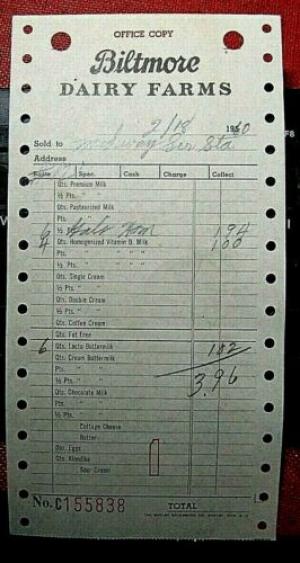 OFFICE COPY
Biltmore
DAIRY FARMS
2/18 1960
Sold to Midway Ser. Sta
Address
Route Span. Cash Charge Collect
Qts. Premium Milk
½ Pts. " "
Qts. Pasteurized Milk
Pts. " "
6 ½ Gals Hom 194
4 Qts. Homogenized Vitamin D. Milk 100
Pts. " " "
½ Pts. " " "
Qts. Single Cream
½ Pts. " "
Qts. Double Cream
½ Pts. " "
Qts. Coffee Cream
Qts. Fat Free
6 Qts. Lacto Buttermilk 102
Qts. Cream Buttermilk
Pts. " " 3.96
½ Pts. " "
Qts. Chocolate Milk
Pts. " "
½ Pts. " "
Cottage Cheese
Butter
Doz. Eggs
Qts. Klondike
Sour Cream
No. C155838 TOTAL